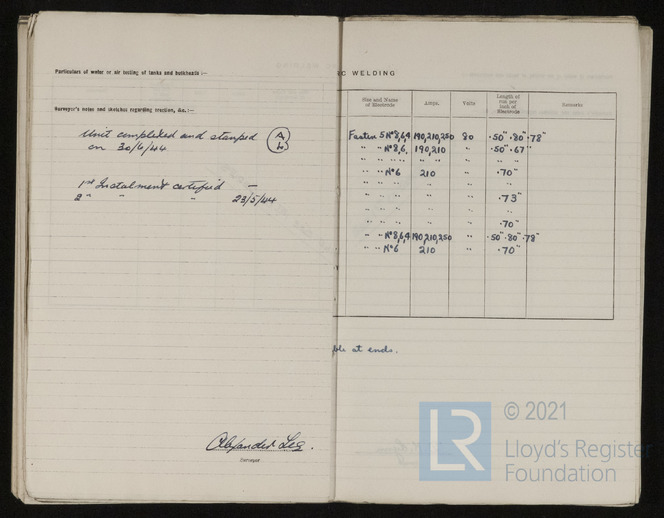 Particulars of water or air testing of tanks and bulkheads :—
Surveyor's notes and sketches regarding erection, &c. :—
Unit completed and stamped
on 30/6/44
1st Instalment certified —
2 " " " 23/5/44
Alexander
Surveyor
IC WELDING
Size and Name of Electrode Amps. Volts Length of run per inch of Electrode Remarks
Fastex 5 Nº8,6,4 190,210,250 80 .50" .80" .78"
" " Nº8,6, 190,210 " .50" .67"
" " " " " " " "
" " Nº6 210 " .70"
" " " " " "
" " " " " .73"
" " " " " "
" " " " " .70"
" " Nº8,6,4 190,210,250 " .50" .80" .78"
" " Nº6 210 " .70"
ble at ends.
LR
© 2021
Lloyd's Register
Foundation